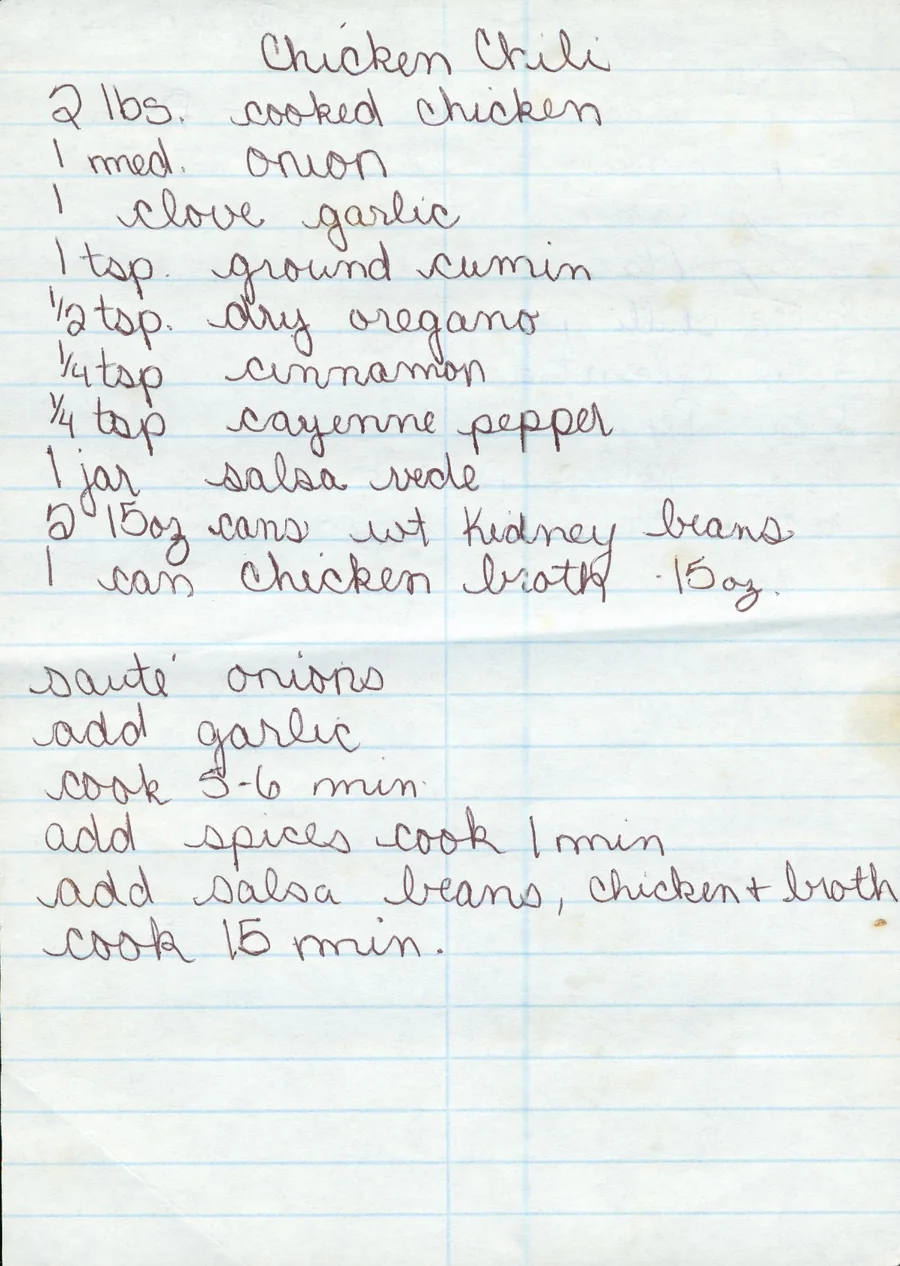 Chicken Chili
2 lbs. cooked chicken
1 med. onion
1 clove garlic
1 tsp. ground cumin
1/2 tsp. dry oregano
1/4 tsp cinnamon
1/4 tsp cayenne pepper
1 jar salsa vede
2 15oz cans wt Kidney beans
1 can chicken broth 15oz.
sauté onions
add garlic
cook 5-6 min.
add spices cook 1 min
add salsa beans, chicken + broth
cook 15 min.